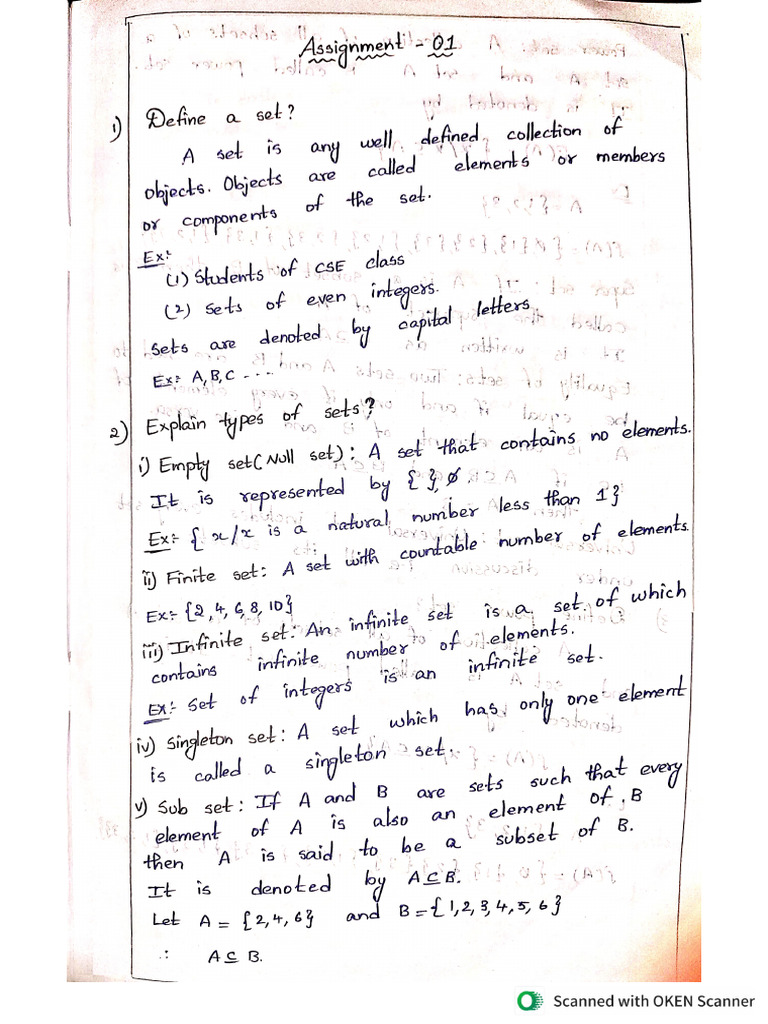 Assignment - 01
1) Define a set?
A set is any well defined collection of
objects. Objects are called elements or members
or components of the set.
Ex:-
(1) Students of CSE class
(2) Sets of even integers.
Sets are denoted by capital letters.
Ex:- A, B, C ....
2) Explain types of sets?
i) Empty set (Null set): A set that contains no elements.
It is represented by { }, ∅
Ex:- { x/x is a natural number less than 1}
ii) Finite set: A set with countable number of elements.
Ex:- {2, 4, 6, 8, 10}
iii) Infinite set: An infinite set is a set of which
contains infinite number of elements.
Ex:- Set of integers is an infinite set.
iv) Singleton set: A set which has only one element
is called a singleton set.
v) Sub set: If A and B are sets such that every
element of A is also an element of B
then A is said to be a subset of B.
It is denoted by A⊆B.
Let A = {2, 4, 6} and B = {1, 2, 3, 4, 5, 6}
∴ A⊆B.
Scanned with OKEN Scanner